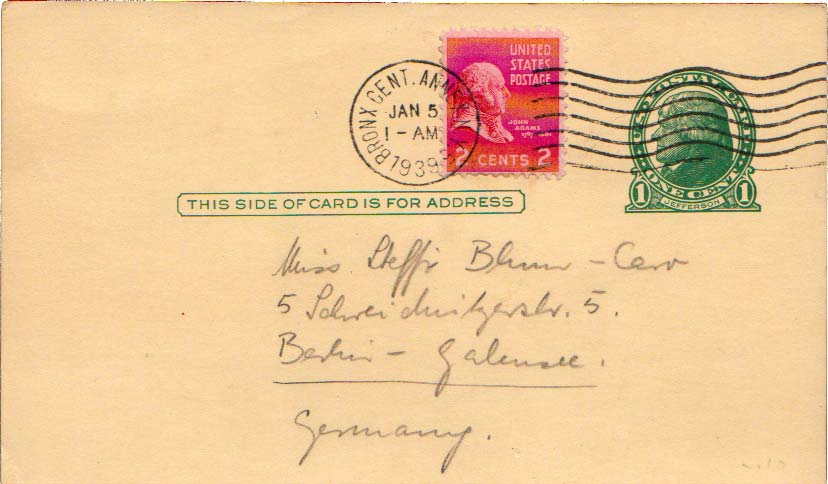 UNITED
STATES
POSTAGE
JOHN
ADAMS
2 CENTS 2
BRONX CENT. ANNEX N.Y.
JAN 5
1 - AM
1939
U.S. POSTAL CARD
ONE CENT
1 1
JEFFERSON
THIS SIDE OF CARD IS FOR ADDRESS
Miss Steffi Blum - Caro
5 Schweidnitzerstr. 5.
Berlin - Halensee.
Germany.